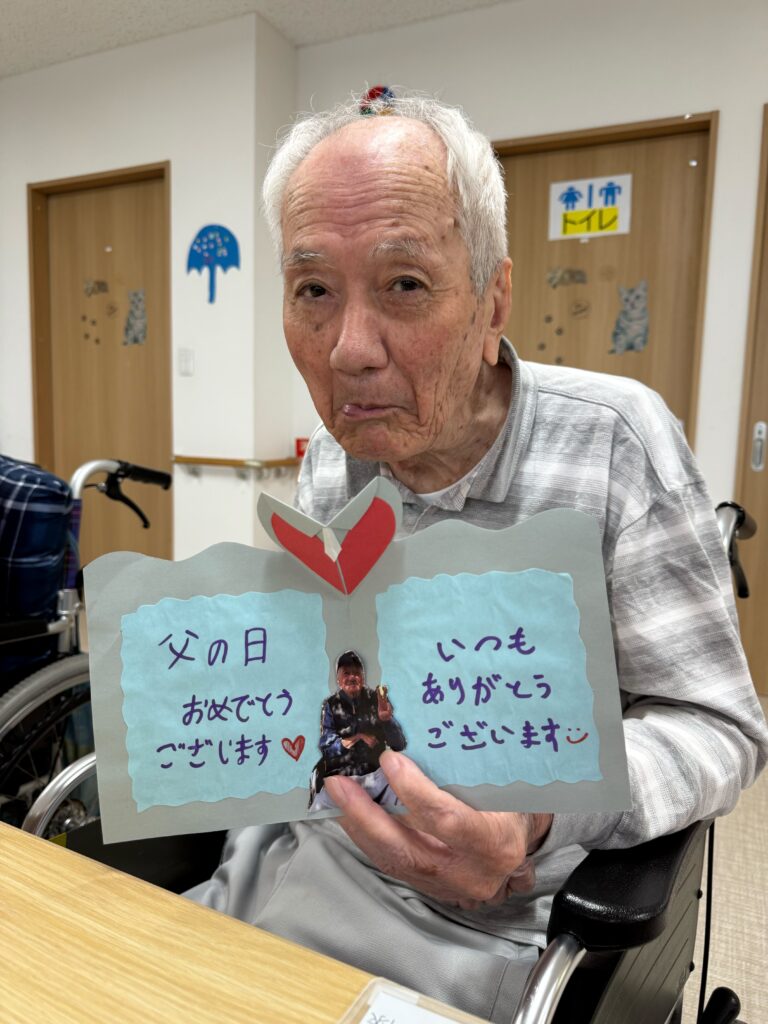 トイレ
父の日
おめでとう
ございます
いつも
ありがとう
ございます